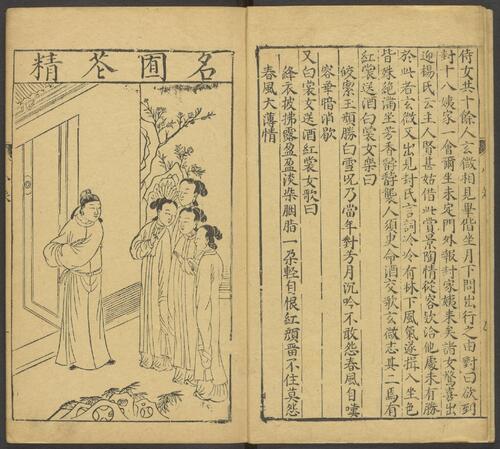 侍女共十餘人玄微相見畢偕坐月下問出行之由對曰欲到
封十八姨家一會爾坐未定門外報封家姨來矣諸女驚喜出
迎楊氏云主人賢甚姑借此賞景陶情從容欵洽他處未有勝
於此者玄微又出見封氏言詞冷冷有林下風氣遂揖入坐色
皆殊絕滿坐芳香馞馞襲人須臾命酒交歌玄微志其二焉有
紅裳送酒白裳女樂曰
皎潔玉顏勝白雪况乃當年對芳月沉吟不敢怨春風自嘆
容華暗消歇
又白裳女送酒紅裳女歌曰
絳衣披拂露盈盈淡染胭脂一朶輕自恨紅顏畱不住莫怨
春風大薄情
名囿芲精